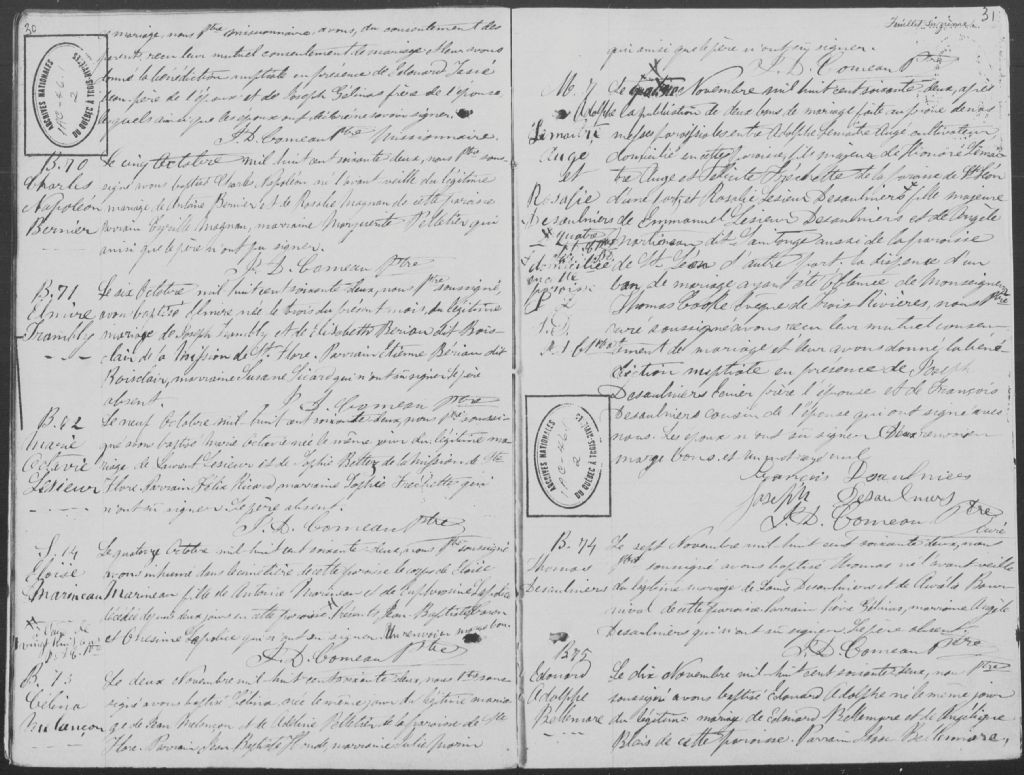 30
mariage, nous ptre missionnaire avons, du consentement des
parents, recu leur mutuel consentement de mariage et leur avons
donné la bénédiction nuptiale en présence de Edouard
père de l'époux et de Joseph Gélinas père de l'épouse
lesquels ainsi que les époux ont déclaré ne savoir signer.
J. D. Comeau Ptre Missionnaire.
ARCHIVES NATIONALES
DU QUÉBEC À TROIS-RIVIÈRES
B. 70
Charles
Napoléon
Bernier
Le cinq Octobre mil huit cent soixante deux, nous Ptre sous-
signé avons baptisé Charles Napoléon né l'avant veille du légitime
mariage de Antoine Bernier et de Rosalie Magnan de cette paroisse
Parrain Cyrille Magnan, marraine Marguerite Pelletier qui
ainsi que le père n'ont pu signer.
J. D. Comeau Ptre
B. 71
Elmire
Trambly
Le six Octobre mil huit cent soixante deux, nous Ptre soussigné,
avons baptisé Elmire née le trois du présent mois, du légitime
mariage de Joseph Trambly et de Elisabeth Beriau dit Bois
clair de la Mission de St. Flore. Parrain Etienne Bériau dit
Boisclair, marraine Susane Sicard qui n'ont su signer le père
absent.
J. D. Comeau Ptre
B. 62
Marie
Octavie
Lesieur
Le neuf Octobre mil huit cent soixante deux, nous Ptre soussi-
gné avons baptisé Marie Octavie née le même jour du légitime ma
riage de Laurent Lesieur et de Sophie de la Mission de Ste
Flore. Parrain Félix Ricard, marraine Sophie Frechette qui
n'ont su signer. Le père absent.
J. D. Comeau Ptre
S. 14
Eloïse
Marineau
Le quatorze Octobre mil huit cent soixante deux, nous Ptre soussigné
avons inhumé dans le cimetière de cette paroisse le corps de Eloïse
Marineau fille de Antoine Marineau et de Euphrosine
décédée depuis deux jours en cette paroisse Présents Jean Baptiste
et Onesime qui n'ont su signer. Un renvoi en marge bon.
J. D. Comeau Ptre
B. 73
Célina
Milançon
Le deux Novembre mil huit cent soixante deux, nous Ptre sous
signé avons baptisé Célina, née le même jour du légitime maria
ge de Jean Melançon et de Adeline Pelletier de la paroisse de Ste
Flore. Parrain Jean Baptiste, marraine Julie
31
Feuillet
qui ainsi que le père n'ont su signer.
J. D. Comeau Ptre
M. 7
Adolphe
Lemaitre
Augé
et
Rosalie
Desaulniers
Le Novembre mil huit cent soixante deux, après
la publication de deux bans de mariage faite au prône de nos
messes paroissiales entre Adolphe Lemaitre Augé cultivateur
domicilié en cette paroisse, fils majeur de Honoré Lemai
tre Augé et Félicité Frechette de la paroisse de St. Léon
d'une part; et Rosalie Lesieur Desaulniers fille majeure
de Emmanuel Lesieur Desaulniers et de Angèle
Martineau dit aussi de la paroisse
domiciliée
en cette
paroisse
de St. Léon d'autre part; la dispense d'un
ban de mariage ayant été obtenue de Monseigneur
Thomas Cooke Evêque de Trois Rivières, nous Ptre
curé soussigné avons recu leur mutuel consen-
tement de mariage et leur avons donné la béné
diction nuptiale en présence de Joseph
Desaulniers frère de l'épouse et de François
Desaulniers cousin de l'épouse qui ont signé avec
nous. Les époux n'ont su signer. Deux renvois en
marge bons et un mot rayé nul
François Desaulniers
Joseph Desaulniers
J. D. Comeau Ptre
curé
ARCHIVES NATIONALES
DU QUÉBEC À TROIS-RIVIÈRES
B. 74
Thomas
Desaulniers
Le sept Novembre mil huit cent soixante deux, nous
Ptre soussigné avons baptisé Thomas né l'avant veille
du légitime mariage de Louis Desaulniers et de
de cette paroisse. Parrain Gélinas, marraine Angèle
Desaulniers qui n'ont su signer. Le père absent.
J. D. Comeau Ptre
B75
Edouard
Adolphe
Bellemare
Le dix Novembre mil huit cent soixante deux, nous Ptre
soussigné avons baptisé Edouard Adolphe né le même jour
du légitime mariage de Edouard Bellemare et de Angélique
Blais de cette paroisse. Parrain Bellemare,